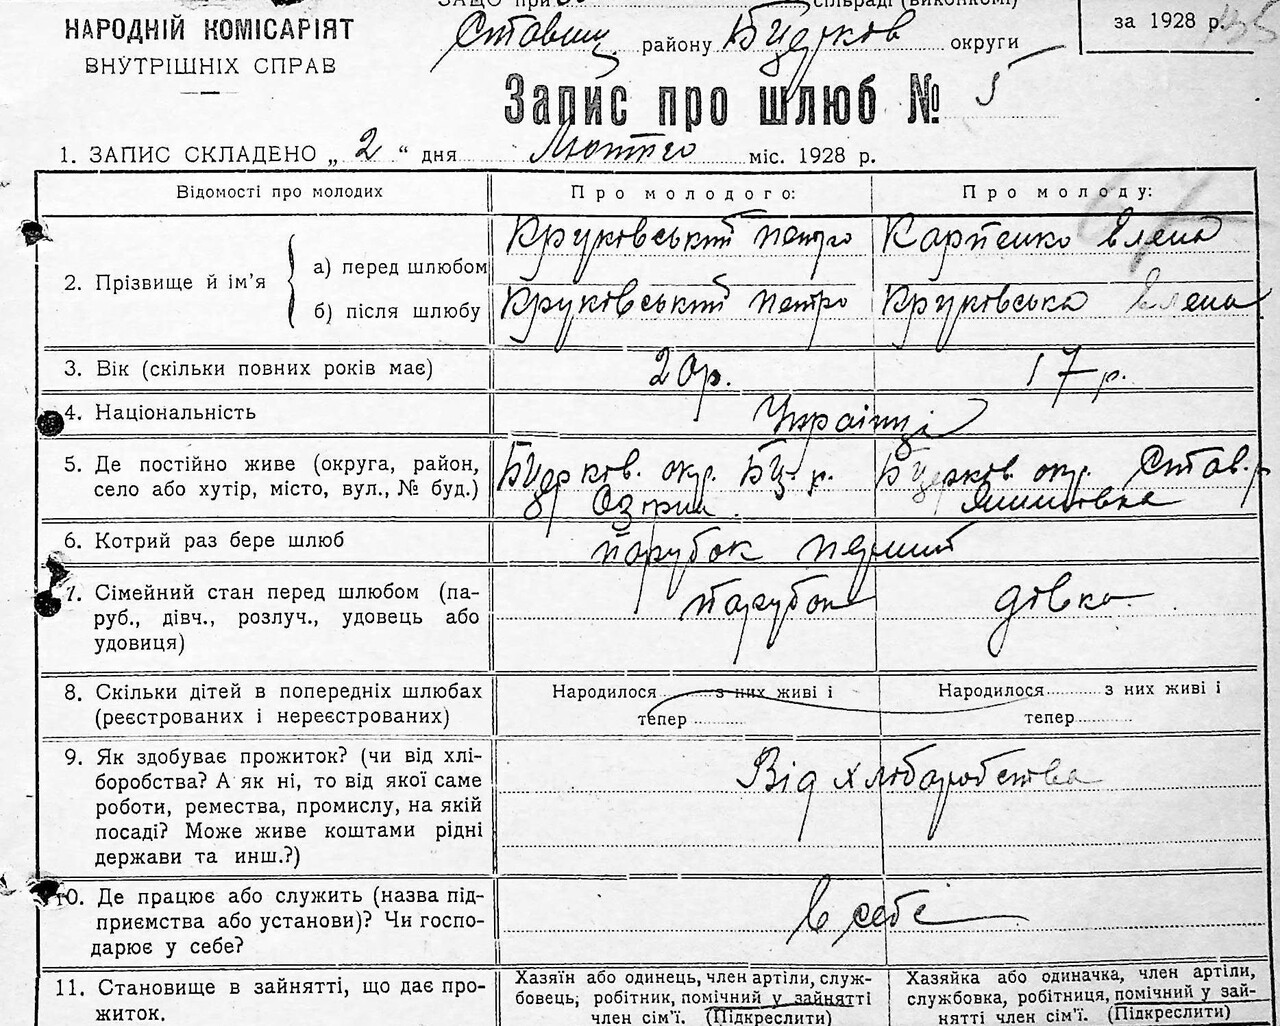 ЗАЦО при сільраді (виконкомі)
НАРОДНІЙ КОМІСАРІЯТ
ВНУТРІШНІХ СПРАВ
Ставищ. району Бцерков округи
за 1928 р.
Запис про шлюб № 5
1. ЗАПИС СКЛАДЕНО „ 2 “ дня Лютого міс. 1928 р.
Відомості про молодих Про молодого: Про молоду:
2. Прізвище й ім’я
а) перед шлюбом Круковський Петро Карпенко Єлена
б) після шлюбу Круковський Петро Круковська Єлена
3. Вік (скільки повних років має) 20р. 17 р.
4. Національність Українці
5. Де постійно живе (округа, район, Бцерков. окр. Бц. р. Бцерков. окр. Став. р
село або хутір, місто, вул., № буд.) Озірна. Яшитовка
6. Котрий раз бере шлюб парубок перший
7. Сімейний стан перед шлюбом (па-
руб., дівч., розлуч., удовець або парубок дівка
удовиця)
8. Скільки дітей в попередніх шлюбах Народилося з них живі і Народилося з них живі і
(реєстрованих і нереєстрованих) тепер тепер
9. Як здобуває прожиток? (чи від хлі-
боробства? А як ні, то від якої саме Від хлібаробства
роботи, ремества, промислу, на якій
посаді? Може живе коштами рідні
держави та инш.?)
10. Де працює або служить (назва під-
приємства або установи)? Чи госпо- в себе
дарює у себе?
11. Становище в зайнятті, що дає про- Хазяїн або одинець, член артіли, служ- Хазяйка або одиначка, член артіли,
житок. бовець; робітник, помічний у зайнятті службовка, робітниця, помічний у зай-
член сім’ї. (Підкреслити) нятті член сім’ї. (Підкреслити)